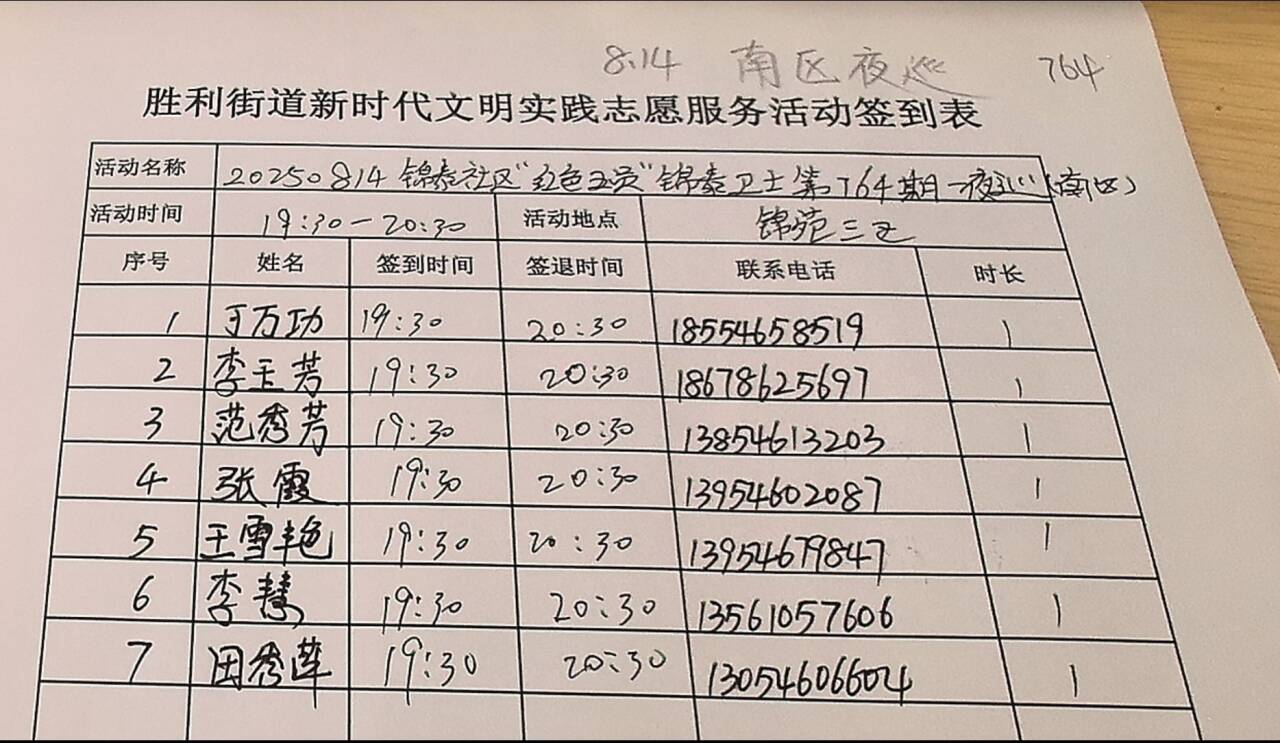 8.14 南区夜巡 764
胜利街道新时代文明实践志愿服务活动签到表
活动名称 20250814 锦泰社区"红色五员"锦泰卫士第764期一夜巡(南区)
活动时间 19:30-20:30 活动地点 锦苑三区
序号 姓名 签到时间 签退时间 联系电话 时长
1 丁万功 19:30 20:30 18554658519 1
2 李玉芳 19:30 20:30 18678625697 1
3 范秀芳 19:30 20:30 13854613203 1
4 张霞 19:30 20:30 13954602087 1
5 王雪艳 19:30 20:30 13954679847 1
6 李慧 19:30 20:30 13561057606 1
7 田秀莲 19:30 20:30 13054606604 1